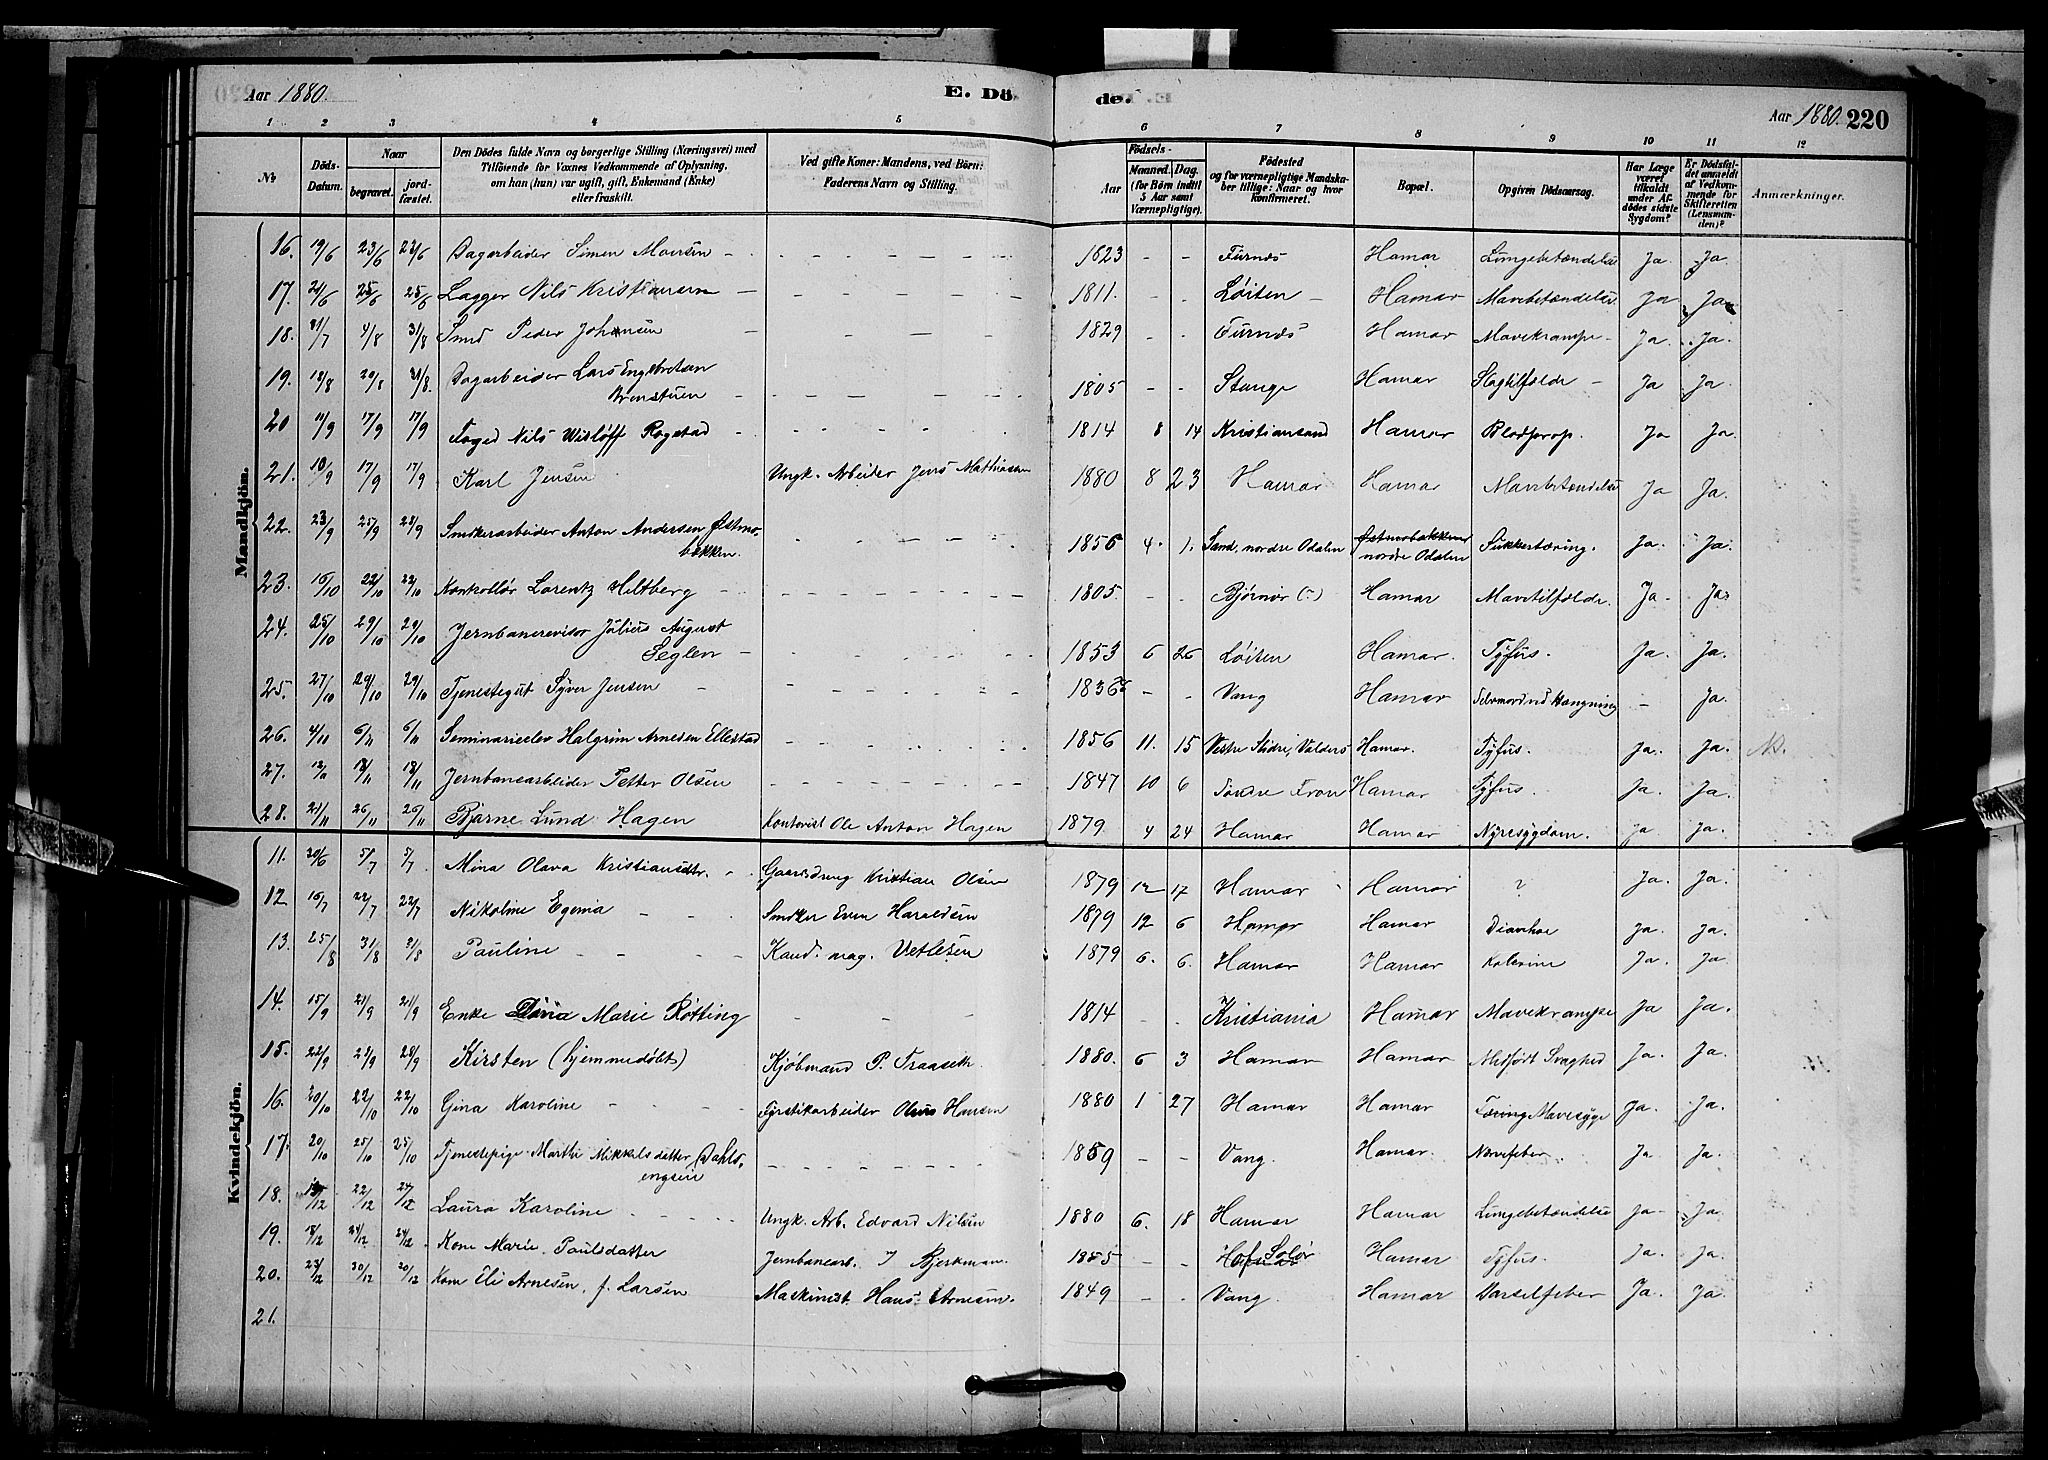 Aar 1880. E. Döde. Aar 1880. 220
1 2 3 4 5 6 7 8 9 10 11 12
No
Döds-Datum.
Naar
begravet.
jord-fæstet.
Den Dödes fulde Navn og borgerlige Stilling (Næringsvei) med
Tilföiende for Voxnes Vedkommende af Oplysning,
om han (hun) var ugift, gift, Enkemand (Enke)
eller fraskilt.
Ved gifte Koner: Mandens, ved Börn:
Faderens Navn og Stilling.
Födsels-
Aar
Maaned. Dag.
(for Börn indtil
5 Aar samt
Værnepligtige).
Födested
og for værnepligtige Mandska-
ber tillige: Naar og hvor
konfirmeret.
Bopæl.
Opgiven Dödsaarsag.
Har Læge
været
tilkaldt
under Af-
dödes sidste
Sygdom?
Er Dödsfal-
det anmeldt
af Vedkom-
mende for
Skifteretten
(Lensman-
den)?
Anmærkninger.
Mandkjön.
16. 19/6 23/6 23/6 Dagarbeider Simen - - 1823 - - Furnæs Hamar Lungebetændelse Ja. Ja.
17. 21/6 25/6 25/6 Lagger Nils Kristiansen - 1811. - - Löiten - Hamar Mavebetændelse Ja Ja
18. 31/7 4/8 Smed Peder Johansen - 1829 - - Furnæs Hamar Mavekrampe - Ja. Ja.
19. 18/8 20/8 Dagarbeider Lars Engebretsen
1805 - - Stange Hamar Slagtilfælde - Ja Ja.
20 11/9 17/9 17/9 Foged Nils Wislöff Rogstad - 1814 8 14 Kristiansand Hamar Ja Ja.
21. 10/9 17/9 17/9 Karl Jensen Ungk. Arbeider Jens Mathiasen 1880 8 23 Hamar Hamar Mavebetændelse Ja Ja.
22. 23/9 25/9 Smskerarbeider Anton Andersen Østmo-
bakken. 1856 4. 1. Sand, nordre Odalen Østmobakken
nordre Odalen Sukkertæring. Ja. Ja.
23. 22/10 22/10 Kontrollör Lorentz Hiltberg - - 1805 - - Bjørnör (?) Hamar Mavetilfælde. Ja. Ja.
24. 25/10 29/10 29/10 Jernbanerevisor Julius August
Seglen - 1853 6 26 Löiten Hamar. Tyfus. Ja. Ja.
25. 27/10 29/10 29/10 Tjenestegut Syver Jensen - 1836 - - Vang Hamar Selvmord ved Hængning - Ja.
26. 4/11 6/11 6/11 Seminarieelev Halgrim Arnesen Ellestad 1856 11. 15 Vestre Slidre, Valders Hamar. Tyfus. Ja. Ja.
27. 13/11 18/11 18/11 Jernbanearbeider Petter Olsen 1847 10 6 Søndre Fron Hamar Tyfus. Ja. Ja.
28. 21/11 26/11 26/11 Bjarne Lund Hagen Kontorist Ole Anton Hagen 1879 4 24 Hamar Hamar Nyresygdom. Ja Ja.
Kvindekjön.
11. 30/6 5/7 5/7 Mina Olava Kristiansdtr. Kristian Olsen 1879 12 17 Hamar Hamar ? Ja. Ja.
12 16/7 22/7 22/7 Nikoline Egenia - - Snedker Even Haraldsen 1879 12 6 Hamar Hamar Diarrhoe Ja. Ja.
13. 25/8 31/8 31/8 Pauline - - Kand. mag. Vetlesen 1879 6. 6. Hamar Hamar Kolerine Ja. Ja.
14. 15/9 21/9 21/9 Enke Marie Røtting - - - 1814 - - Kristiania Hamar Mavekrampe Ja Ja.
15. 22/9 Kirsten (hjemmedöbt) Kjöbmand P. Fraaseth. 1880. 6 3 Hamar Hamar Medfödt Svaghed Ja. Ja.
16. 20/10 22/10 22/10 Gina Karoline - - Fyrstikarbeider Olaus Hansen 1880 1 27 Hamar Hamar Mavesyge Ja. Ja.
17. 20/10 25/10 25/10 Tjenestepige Marthe Mikkelsdatter Dahls-
engen 1859 - - Vang. Hamar. Nervefeber. Ja Ja.
18. 22/12 Laura Karoline - - Ungk. Arb. Edvard Nilsen 1880 6. 18 Hamar Hamar Lungebetændelse Ja- Ja.
19. 18/12 24/12 24/12 Kone Marie Paulsdatter Jernbanearb. J Bjerkman. 1855 - - Hof Solör Hamar Tyfus. Ja. Ja.
20. 23/12 30/12 30/12 Kone Eli Arnesen, f. Larsen Maskinist Hans Arnesen. 1849 - - Vang. Hamar Barselfeber Ja. Ja.
21.